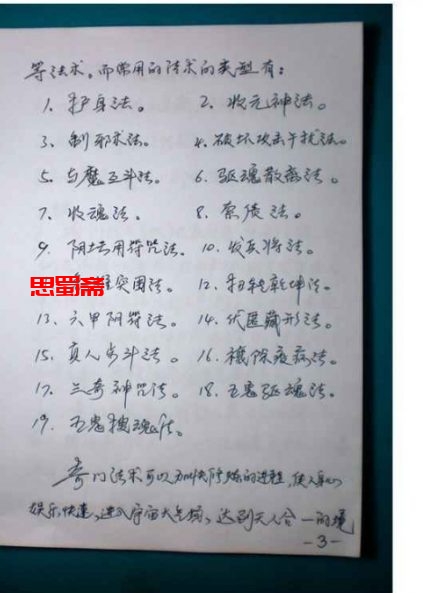 等法术。而常用的法术的类型有：
1、护身法。 2、收元神法。
3、制邪术法。 4、破坏攻击干扰法。
5、与魔互斗法。 6、驱魂散病法。
7、收魂法。 8、祭侯法。
9、阴坛用符咒法。 10、发兵将法。
思蜀斋 突围法。 12、扭转乾坤法。
13、六甲阴符法。 14、伏匿藏形法。
15、真人步斗法。 16、禳除疫病法。
17、三奇神咒法。 18、五鬼驱魂法。
19、五鬼搜魂法。
奇门法术可以加快修炼的进程，使人身心
娱乐快速进入宇宙大气场，达到天人合一的境
-3-